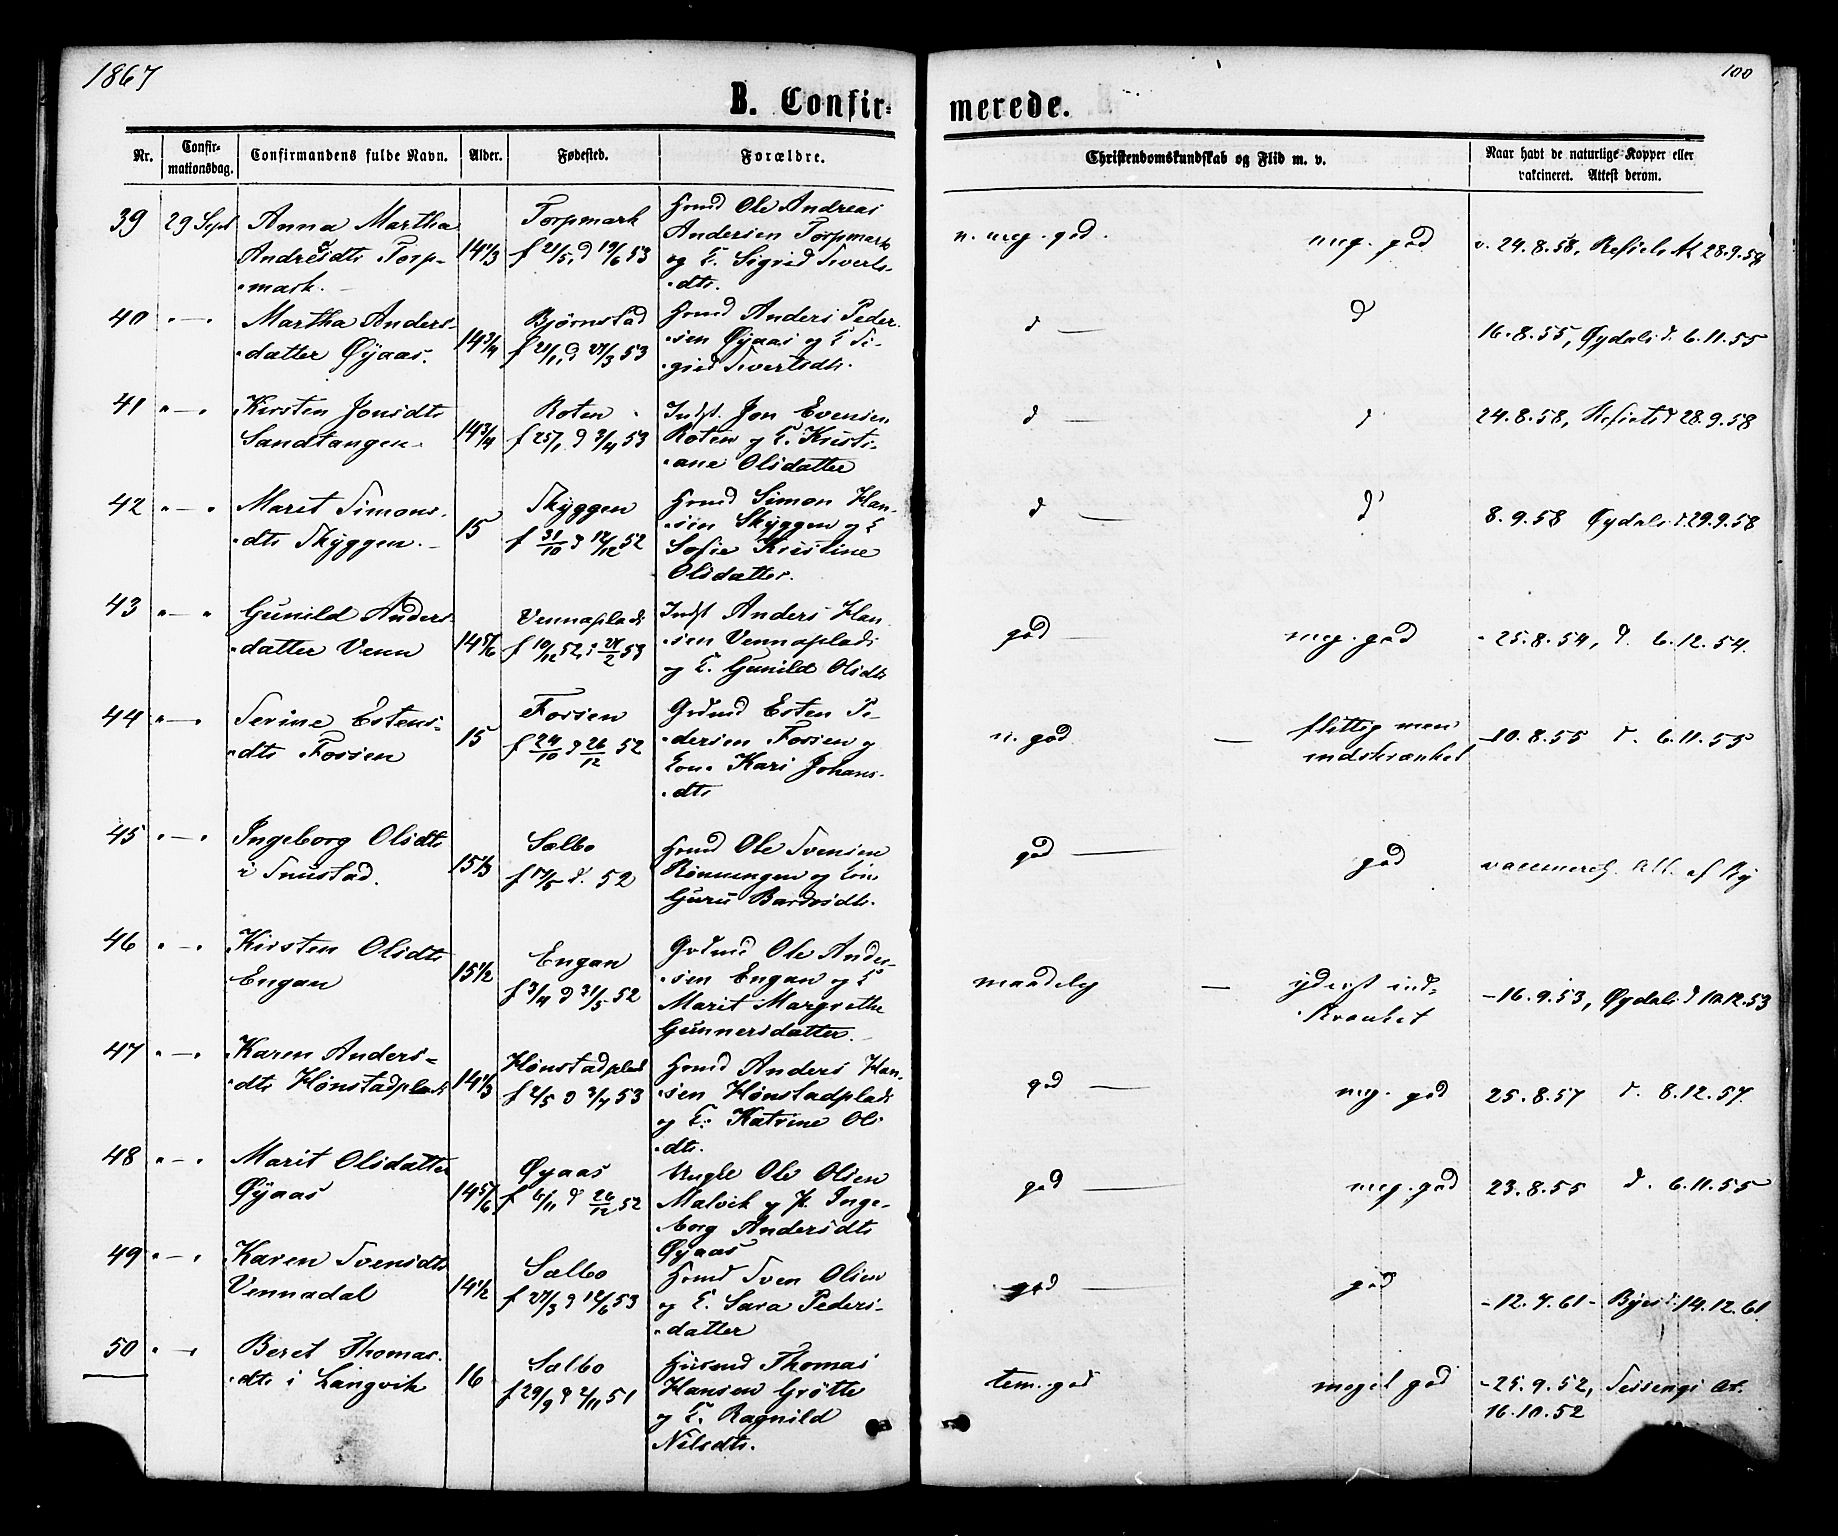 1867
100
B. Confir-
merede.
Nr.
Confir-
mationsdag.
Confirmandens fulde Navn.
Alder.
Fødested.
Forældre.
Christendomskundskab og Flid m. v.
Naar havt de naturlige Kopper eller
vakcineret. Attest derom.
39 29 Sept Anna Martha
Andreasdtr Torp-
mark.
14 1/3
Torpmark
f 21/5, d 19/6 53
Hmd Ole Andreas
Andersen Torpmark
og E. Sigrid Siverts-
dtr.
n. meg. god. meg. god
v. 24.8.58, At 28.9.58
40 " — " Martha Anders-
datter Øyaas.
14 3/4
Bjørnstad
f 21/1, d 28/3 53
Hmd Anders Peder-
sen Øyaas og E Si-
grid Sivertsdtr.
d — d
16.8.55, Øydals d. 6.11.55
41 " — " Kirsten Jonsdtr
Sandtangen.
14 3/4
Roten
f 25/1 d 3/4 53
Indst. Jon Evensen
Roten og E. Kristi-
ane Olsdatter
d — d
24.8.58, d 28.9.58
42 " — " Marit Simons-
dtr Skyggen.
15
Skyggen
f 31/10 d 12/12 52
Hmd Simon Han-
sen Skyggen og E
Sofie Kristine
Olsdatter.
d — d
8.9.58 Øydals d. 29.9.58
43 " — " Gunild Anders-
datter Venn
14 5/6
Vennaplads
f 10/12 52, d 28/2 53
Indst Anders Han-
sen Vennaplads
og E. Gunild Olsdtr
god — meg. god
- 25.8.54, d. 6.12.54.
44 " — " Serine Estens-
dtr Fossen
15
Fossen
f 24/10 d 26/12 52
Grdmd Esten Pe-
dersen Fossen og
Kone Kari Johans-
dtr
n. god — flittig men
indskrænket
- 10.8.55 d. 6.11.55
45 " — " Ingeborg Olsdtr
i Snustad.
15 1/3
Sælbo
f 17/5 d. 52
Hmd Ole Svensen
Rønningen og Kone
Guru Bardosdtr.
god — god
vaccineret. Att. af
46 " — " Kirsten Olsdtr
Engan
15 1/2
Engan
f 3/4 d 31/5 52
Grdmd Ole Ander-
sen Engan og E
Marit Margrethe
Gunnersdatter.
maadelig — yderst ind-
skrænket
- 16.9.53, Øydals d 10.12.53
47 " — " Karen Anders-
dtr Hønstadplads
14 1/3
Hønstadplads
f 2/5 d 3/7 53
Hmd Anders Han-
sen Hønstadplads
og E. Katrine Ols-
dtr.
god — meg. god
25.8.57 d. 8.12.57.
48 " — " Marit Olsdatter
Øyaas
14 5/6
Øyaas
f 6/11 d 26/12 52
Ungk Ole Olsen
Malvik og P. Inge-
borg Andersdtr
Øyaas
god — meg. god
23.8.55 d. 6.11.55
49 " — " Karen Svensdtr
Vennadal
14 1/2
Sælbo
f 27/3 d 12/6 53
Hmd Sven Olsen
og E. Sara Peders-
datter
god — god
- 12.7.61 - 14.12.61
50 " — " Beret Thomas-
dtr i Langvik
16
Sælbo
f 29/9 d 2/11 51
Husmd Thomas
Hansen Grøtte
og E. Ragnild
Nilsdtr.
tem. god meget god
- 25.9.52, At.
16.10.52